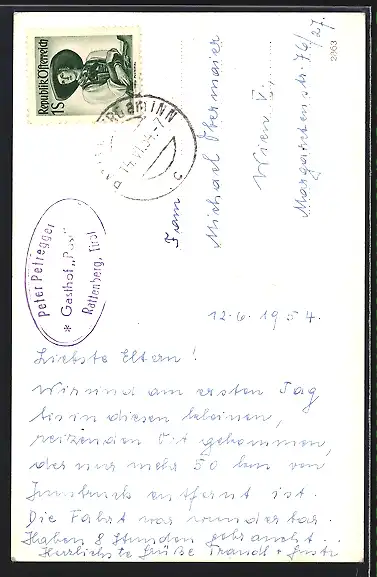 Republik Österreich
1S
Peter Petregger
* Gasthof „Post"
Rattenberg, Tirol
Fam
Michael Obermaier
Wien
Margaretenstr. 76/27.
2263
12.6.1954.
Liebste Eltern!
Wir sind am ersten Tag
bis in diesen kleinen,
reizenden Ort gekommen,
der nur mehr 50 km von
Innsbruck entfernt ist.
Die Fahrt war wunderbar.
Haben 8 Stunden gebraucht..
Herzlichste Grüße Trandl + Gusti